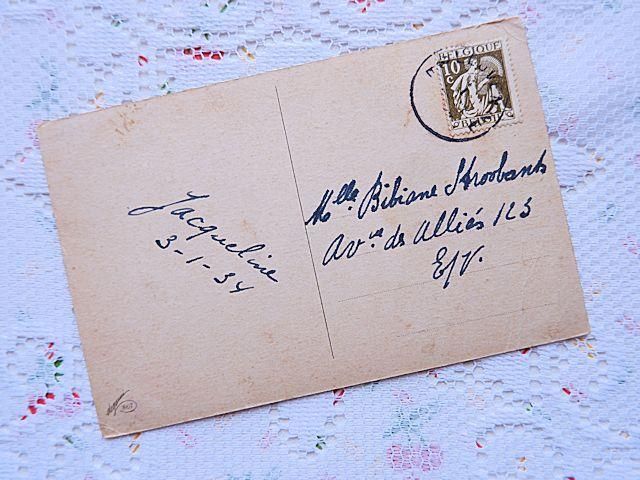 BELGIQUE
10
c
BELGIE
Jacqueline
3-1-34
Melle. Bibiane Stroobants
Av.ue des Alliés 123
E/V.